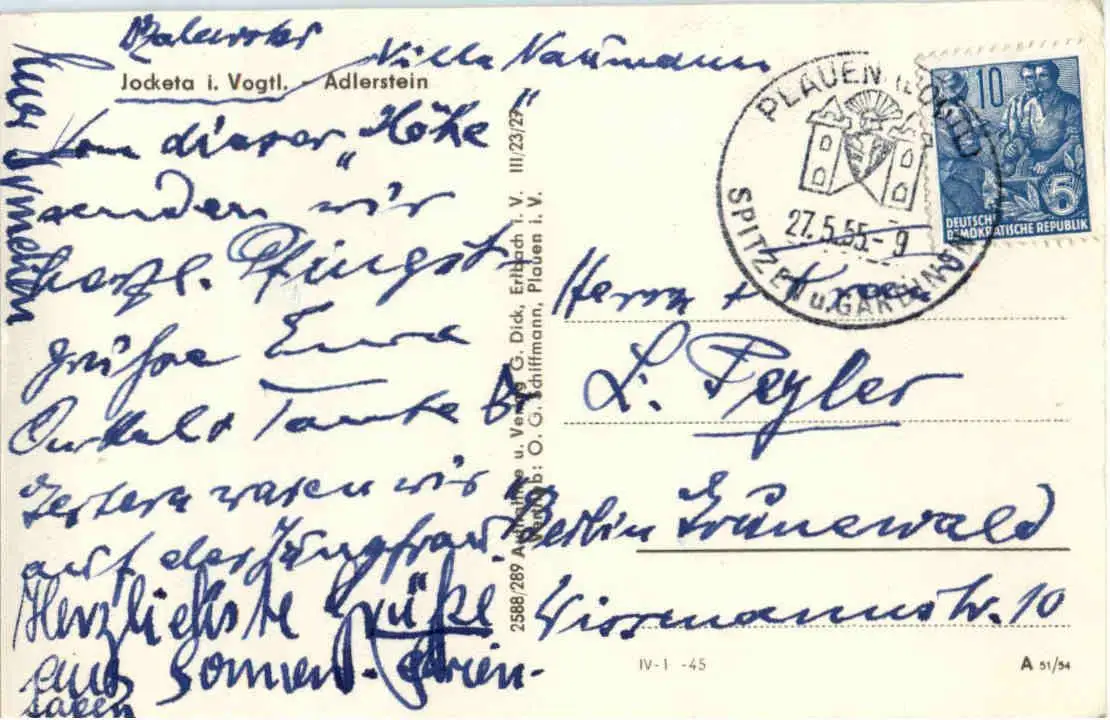 Villa Naumann
Jocketa i. Vogtl. - Adlerstein
Von dieser „Höhe"
senden wir
herzl. Pfingst-
grüße Eure
Onkel + Tante
Gestern waren wir
auf der „Jungfrau".
Herzlichste Grüße
aus Sonnen-
2588/289 Aufnahme u. Verlag G. Dick, Erlbach i. V. III/23/27
Vertrieb: O. G. Schiffmann, Plauen i. V.
PLAUEN (VOGTL)
27.5.55.-9
SPITZEN u. GARDINEN
10
5
DEUTSCHE
DEMOKRATISCHE REPUBLIK
Herrn + Frau
L. Pegler
Berlin Grünewald
Wissmannstr. 10
IV-1 -45
A 51/54